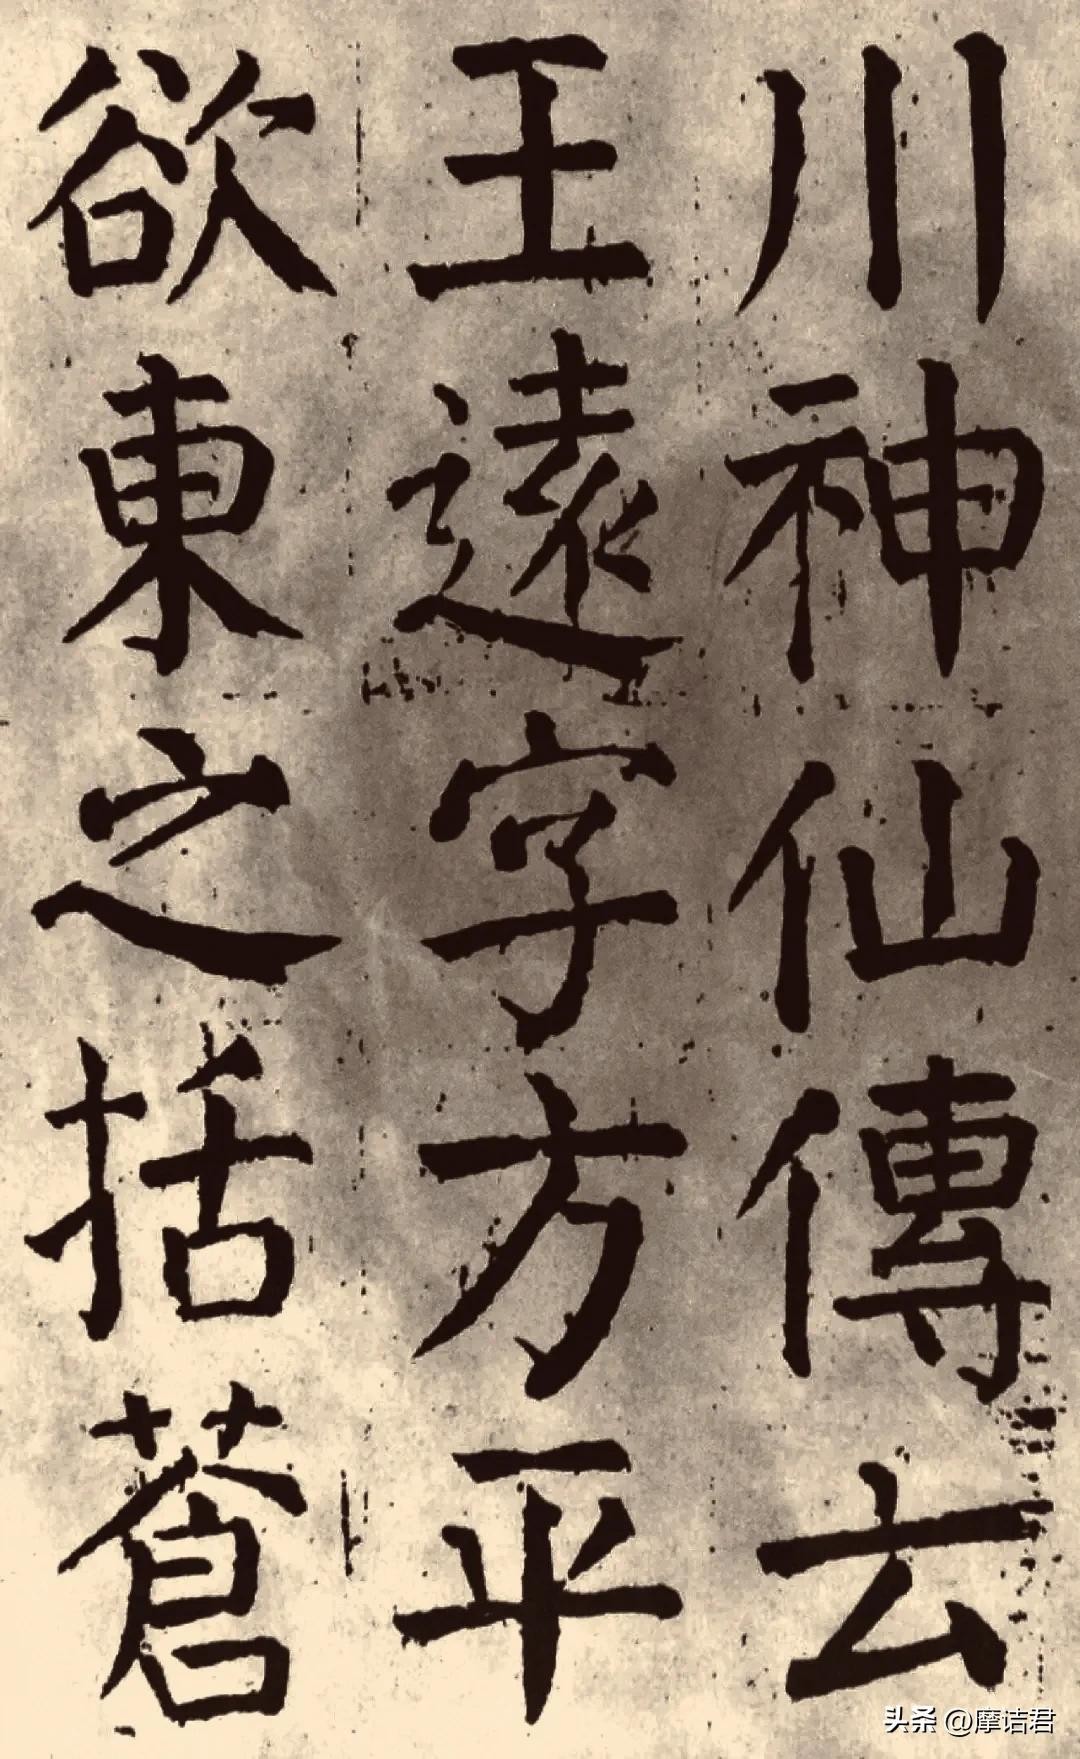 川神仙傳云
王遠字方平
欲東之括蒼
头条 @摩诘君